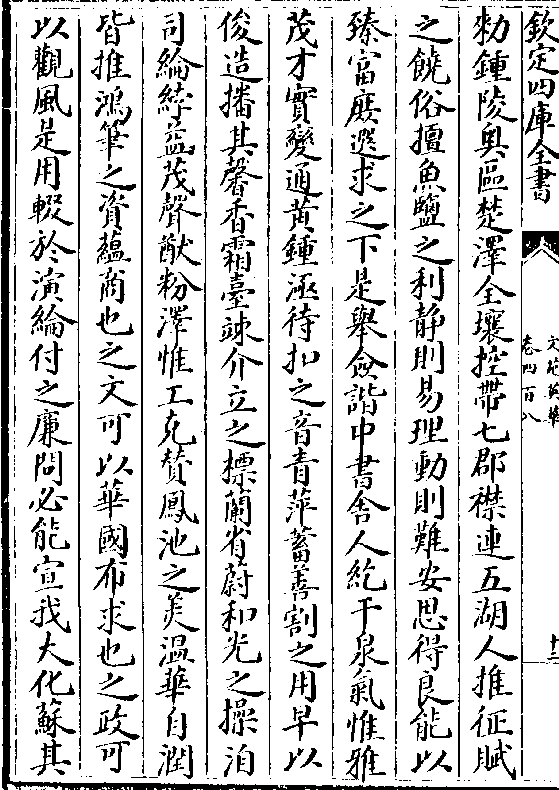 欽定四庫全書
文苑英華
卷四百八
十三
勑鍾陵奥區楚澤全壤控帶七郡襟連五湖人推征賦
之饒俗擅魚鹽之利静則易理動則難安思得良能以
臻富庶選求之下是舉僉諧中書舍人紇干泉氣惟雅
茂才實變通黄鍾亟待扣之音青萍蓄善割之用早以
俊造播其馨香霜臺竦介立之標蘭省蔚和光之操洎
司綸綍益茂聲猷粉澤惟工克賛鳳池之美温華自潤
皆推鴻筆之資藴商也之文可以華國布求也之政可
以觀風是用輟於演綸付之廉問必能宣我大化蘇其